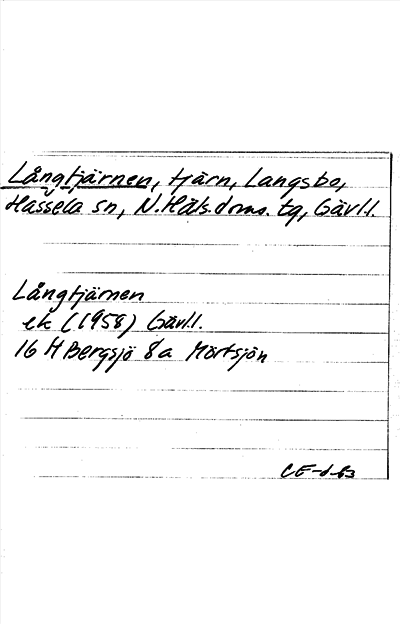 Långtjärnen, tjärn, Langsbo,
Hassela sn, N.Häls.doms. tg, Gävl.l.
Långtjärnen
ek (1958) Gävl.l.
16 H Bergsjö 8a Mörtsjön